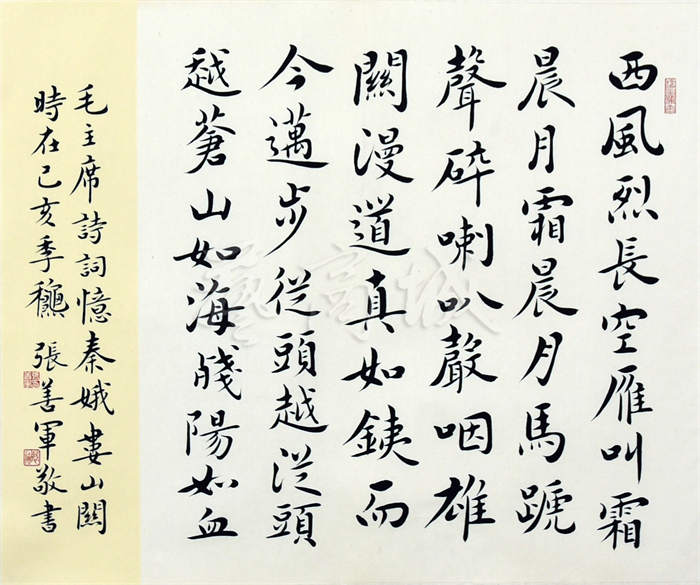 西風烈長空雁叫霜
晨月霜晨月馬蹏
聲碎喇叭聲咽雄
關漫道真如鐵而
今邁步從頭越從頭
越蒼山如海殘陽如血
毛主席詩詞憶秦娥婁山關
時在己亥季龝張善軍敬書
藝高城